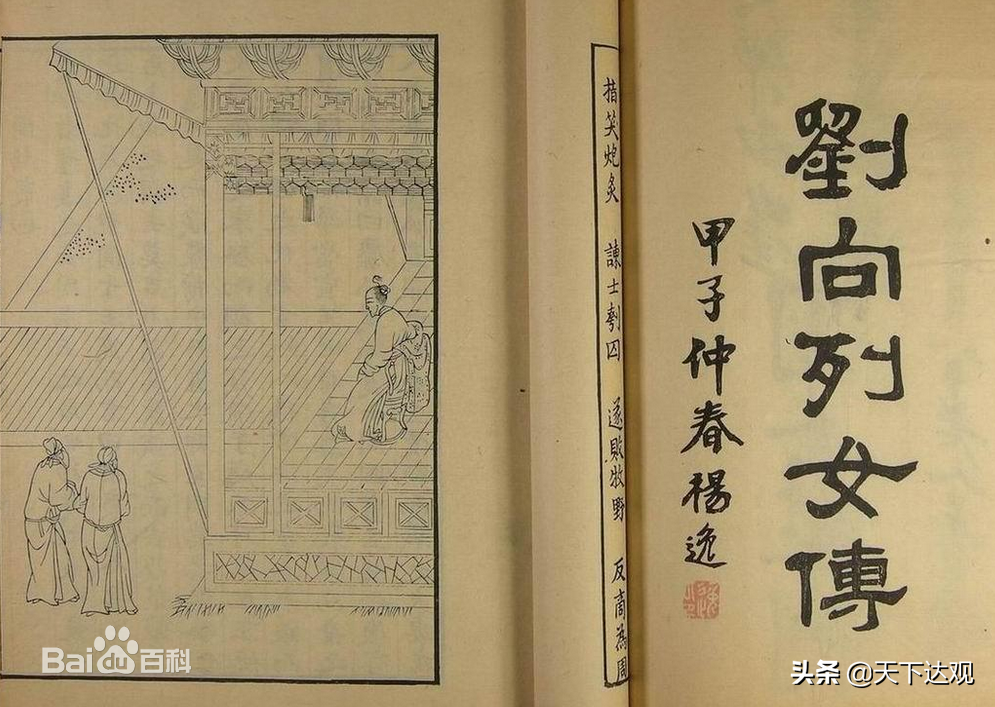 劉向列女傳
甲子仲春楊逸
指笑炮炙 諫士刳囚 遂敗牧野 反商為周
Bai百科
头条 @天下达观